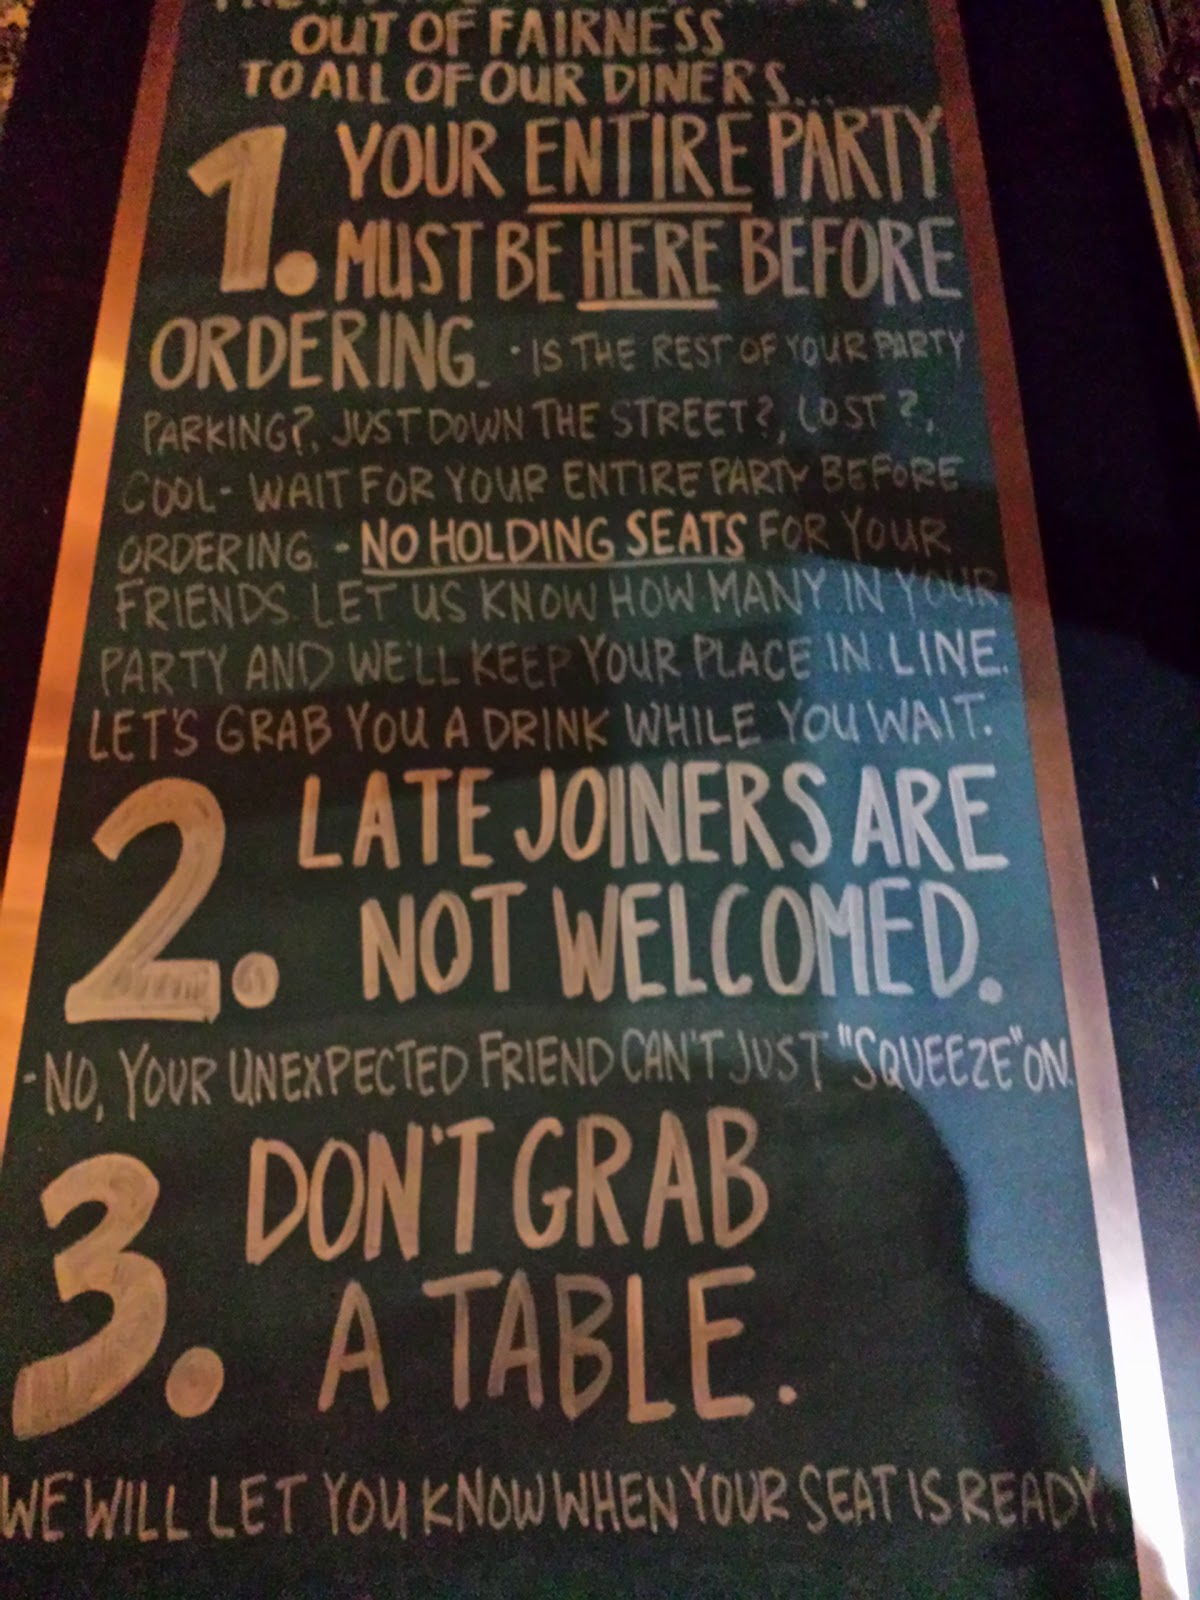 OUT OF FAIRNESS
TO ALL OF OUR DINERS...
1. YOUR ENTIRE PARTY
MUST BE HERE BEFORE
ORDERING. - IS THE REST OF YOUR PARTY
PARKING?, JUST DOWN THE STREET?, LOST?,
COOL - WAIT FOR YOUR ENTIRE PARTY BEFORE
ORDERING. - NO HOLDING SEATS FOR YOUR
FRIENDS. LET US KNOW HOW MANY IN YOUR
PARTY AND WE'LL KEEP YOUR PLACE IN LINE.
LET'S GRAB YOU A DRINK WHILE YOU WAIT.
2. LATE JOINERS ARE
NOT WELCOMED.
- NO, YOUR UNEXPECTED FRIEND CAN'T JUST "SQUEEZE" ON.
3. DON'T GRAB
A TABLE.
WE WILL LET YOU KNOW WHEN YOUR SEAT IS READY.